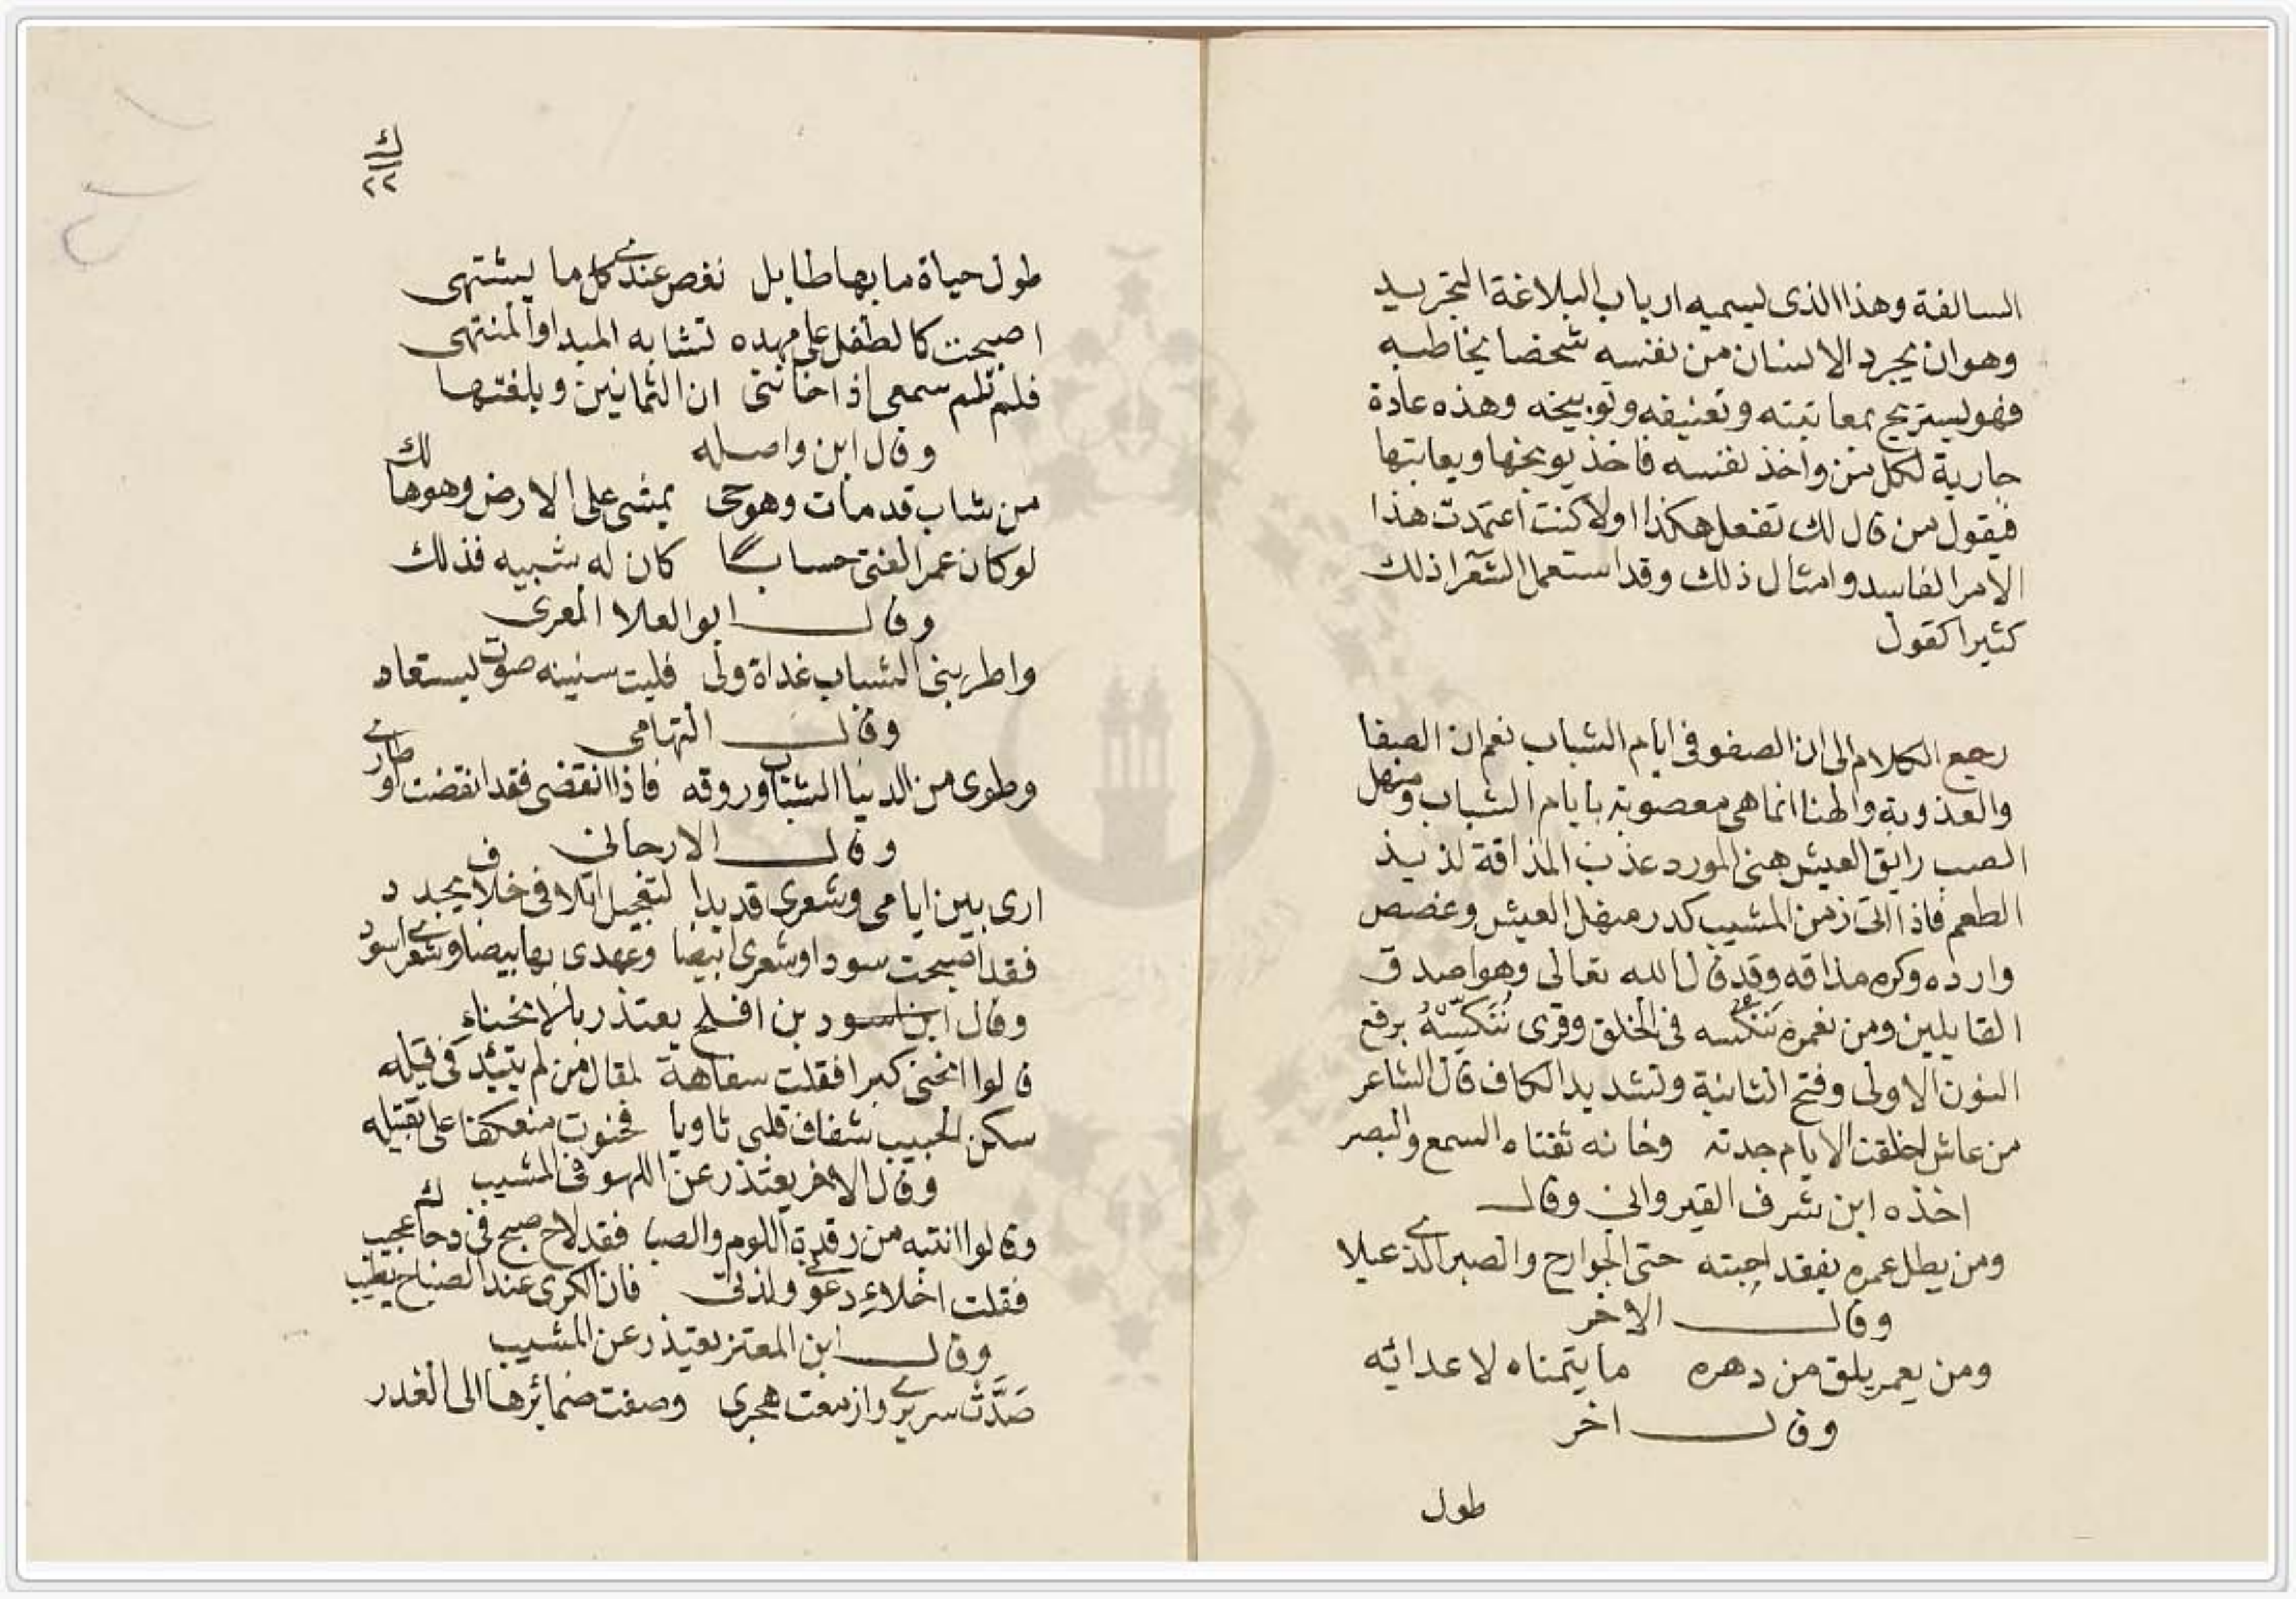 السالفة وهذا الذى يسميه ارباب البلاغة التجريد
وهوان يجرد الانسان من نفسه شخصا يخاطبه
فهو يستريح بمعاتبته وتعنيفه وتوبيخه وهذه عادة
جارية لكل من واخذ نفسه فاخذ يوبخها ويعاتبها
فيقول من قال لك تفعل هكذا اولا كنت اعتمدت هذا
الامر الفاسد وامثال ذلك وقد استعمل الشعرا ذلك
كثيرا كقول
رجع الكلام الى ان الصفو فى ايام الشباب نعم ان الصفا
والعذوبة والهنا انما هى معصوبة بايام الشباب ومنهل
الصبى رايق العيش هنى المورد عذب المذاقة لذيذ
الطعم فاذا اتى زمن المشيب كدر منهل العيش وغصص
وارده وكره مذاقه وقد قال الله تعالى وهو اصدق
القايلين ومن نعمره ننكسه فى الخلق وقرى نُنَكِّسْهُ برفع
النون الاولى وفتح الثانية وتشديد الكاف قال الشاعر
من عاش اخلقت الايام جدته وخانه ثقتاه السمع والبصر
اخذه ابن شرف القيروانى وقال
ومن يطل عمره يفقد احبته حتى الجوارح والصبر الذى عيلا
وقال الاخر
ومن يعمر يلق من دهره ما يتمناه لاعدائه
وقال اخر
طول
ك
٢٢
طول حياة ما بها طايل نغص عندى كل ما يشتهى
اصبحت كالطفل على مهده تشابه المبدا والمنتهى
فلم تلم سمعى اذا خاننى ان الثمانين وبلغتها
وقال ابن واصله
من شاب قدمات وهو حى يمشى على الارض وهو هالك
لو كان عمر الفتى حسابا كان له شبيه فذلك
وقال ابو العلا المعرى
واطربنى الشباب غداة ولى فليت سنينه صوت يستعاد
وقال التهامى
وطوى من الدنيا الشباب وروقه فاذا انقضى فقد انقضت اوطارى
وقال الارجانى
ارى بين ايامى وشعرى قد بدا لتعجيل اتلافى خلاف يجدد
فقد اصبحت سودا وشعرى ابيضا وعهدى بها بيضا وشعرى اسود
وقال ابن اسود بن افلح يعتذر بالانحناء
قالوا انحنى كبرا فقلت سفاهة لمقال من لم يتئد فى قيله
سكن الحبيب شغاف قلبى ثاويا فحنوت منعكفا على تقبيله
وقال الاخر يعتذر عن اللهو فى المشيب
وقالوا انتبه من رقدة اللوم والصبا فقد لاح صبح فى دجاك عجيب
فقلت اخلاءى دعونى ولذتى فان الكرى عند الصباح يطيب
وقال ابن المعتز يعتذر عن المشيب
صَدَّتْ سريرى وازمعت هجرى وصفت ضمائرها الى الغدر